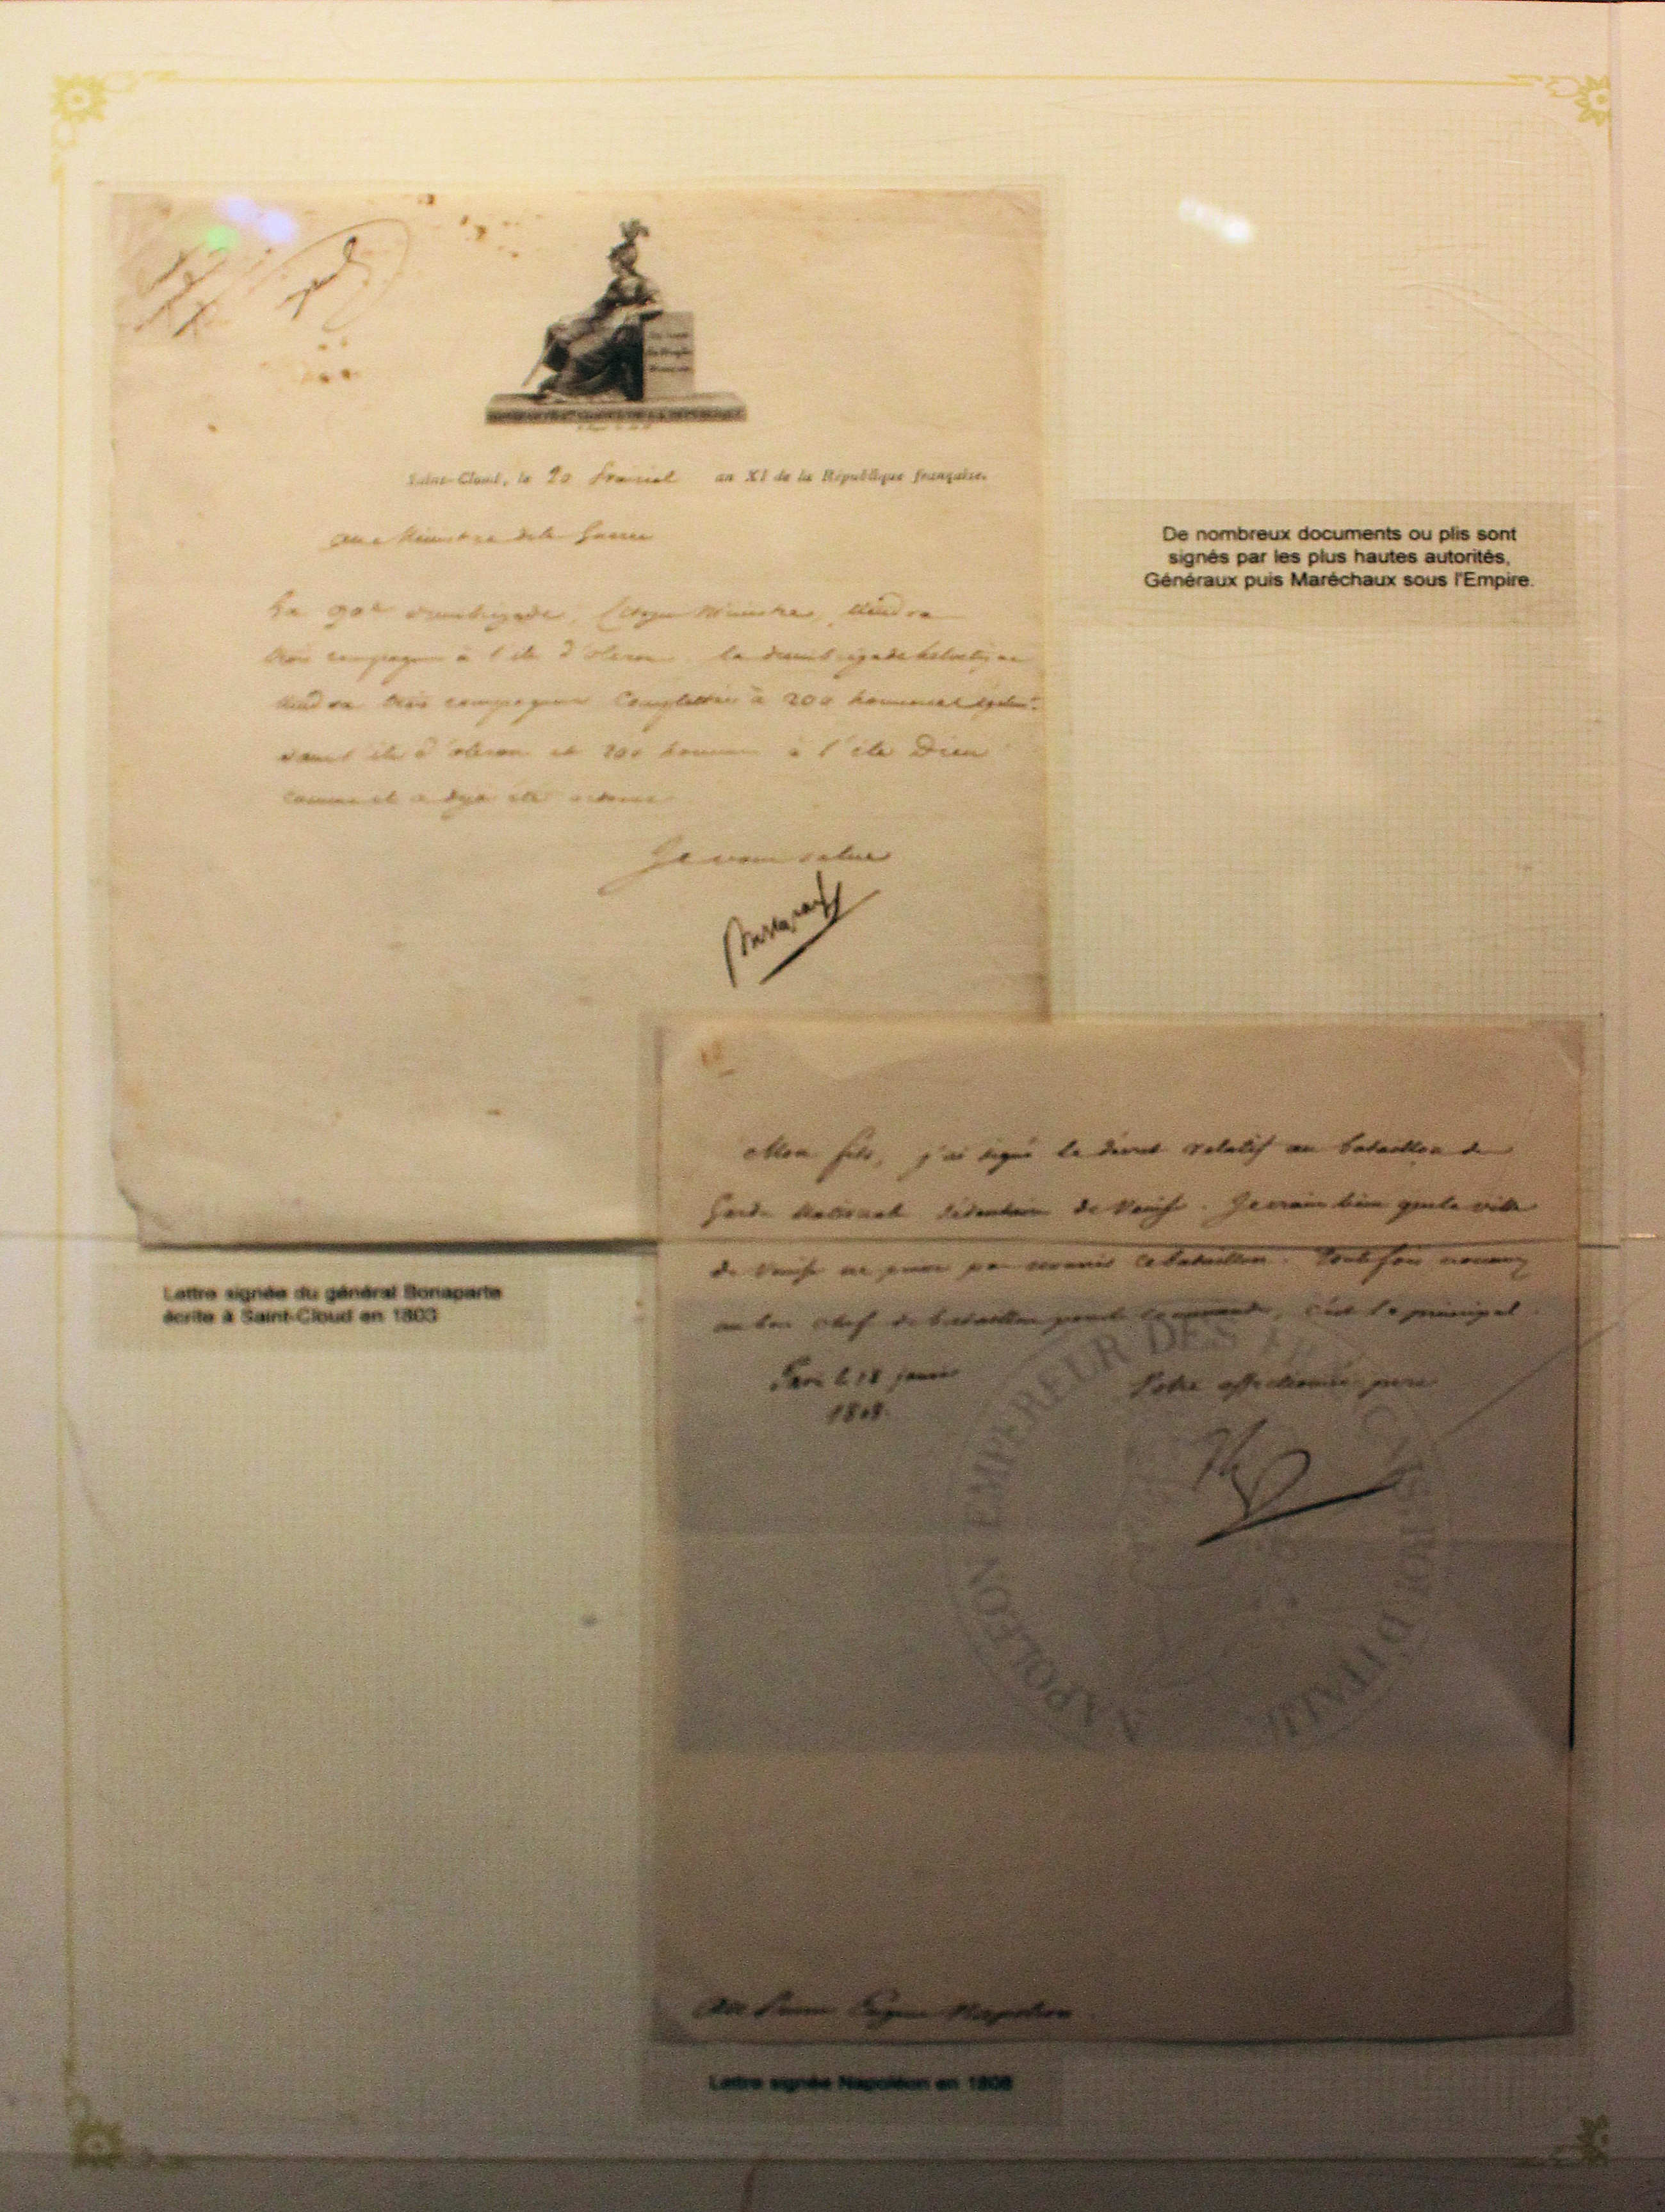 Au nom
du Peuple
Français.
Saint-Cloud, le 20 Prairial an XI de la République française.
Au Ministre de la Guerre
La 90e demibrigade, Citoyen Ministre, tiendra
trois compagnies à l'ile d'oleron. la demibrigade helvetique
tiendra trois compagnies Complettées à 200 hommes
dans l'ile d'oleron et 200 hommes à l'ile Dieu
comme il a deja été ordonné
Je vous salue
Bonaparte
De nombreux documents ou plis sont
signés par les plus hautes autorités,
Généraux puis Maréchaux sous l'Empire.
Lettre signée du général Bonaparte
écrite à Saint-Cloud en 1803
Mon fils, j'ai signé le décret relatif au bataillon de
Garde Nationale sédentaire de Venise. Je crains bien que la ville
de Venise ne puisse pas fournir ce bataillon. Toutefois nommez
un bon chef de bataillon pour le commander, c'est le principal.
Paris le 18 janvier
1808.
Votre affectionné père
Nap
NAPOLEON EMPEREUR DES FRANCAIS ROI D'ITALIE
Au Prince Eugene Napoleon
Lettre signée Napoléon en 1808